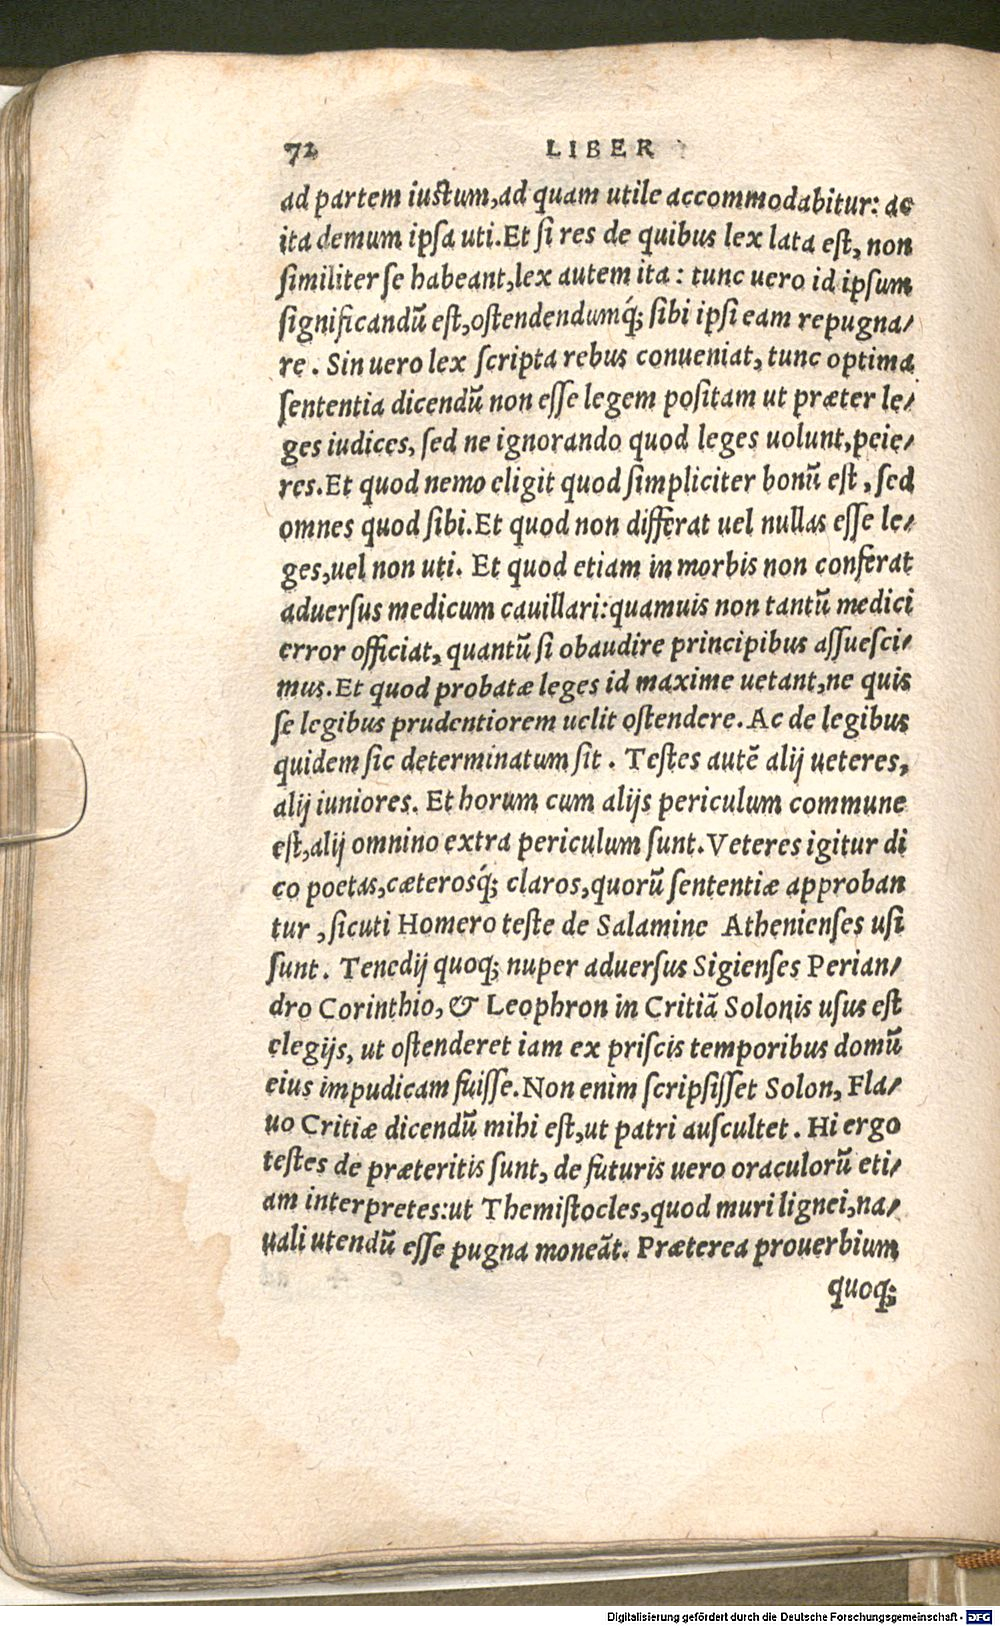 72 LIBER
ad partem iustum,ad quam utile accommodabitur: ac
ita demum ipsa uti.Et si res de quibus lex lata est, non
similiter se habeant,lex autem ita : tunc uero id ipsum
significandũ est,ostendendumq́; sibi ipsi eam repugna/
re . Sin uero lex scripta rebus conueniat, tunc optima
sententia dicendũ non esse legem positam ut præter le/
ges iudices, sed ne ignorando quod leges uolunt,peie/
res.Et quod nemo eligit quod simpliciter bonũ est , sed
omnes quod sibi.Et quod non differat uel nullas esse le/
ges,uel non uti. Et quod etiam in morbis non conferat
aduersus medicum cauillari:quamuis non tantũ medici
error officiat, quantũ si obaudire principibus assuesci/
mus.Et quod probatæ leges id maxime uetant,ne quis
se legibus prudentiorem uelit ostendere. Ac de legibus
quidem sic determinatum sit . Testes autẽ alij ueteres,
alij iuniores. Et horum cum alijs periculum commune
est,alij omnino extra periculum sunt.Veteres igitur di
co poetas,cæterosq́; claros,quorũ sententiæ approban
tur , sicuti Homero teste de Salamine Athenienses usi
sunt. Tenedij quoq; nuper aduersus Sigienses Perian/
dro Corinthio, & Leophron in Critiã Solonis usus est
elegijs, ut ostenderet iam ex priscis temporibus domũ
eius impudicam fuisse.Non enim scripsisset Solon, Fla/
uo Critiæ dicendũ mihi est,ut patri auscultet . Hi ergo
testes de præteritis sunt, de futuris uero oraculorũ eti/
am interpretes:ut Themistocles,quod muri lignei,na/
uali utendũ esse pugna moneãt. Præterea prouerbium
quoq;
Digitalisierung gefördert durch die Deutsche Forschungsgemeinschaft - DFG